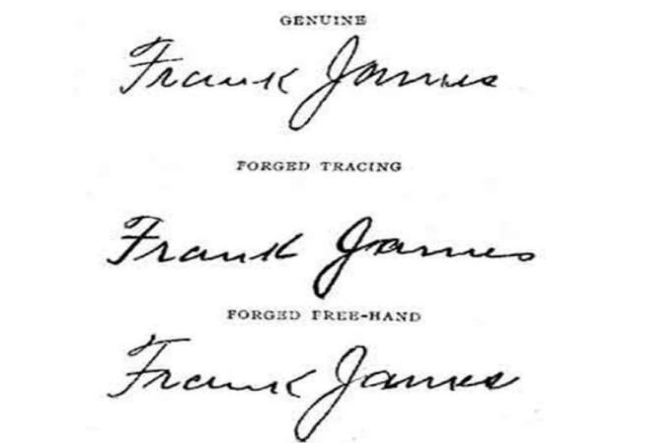 GENUINE
Frank James
FORGED TRACING
Frank James
FORGED FREE-HAND
Frank James